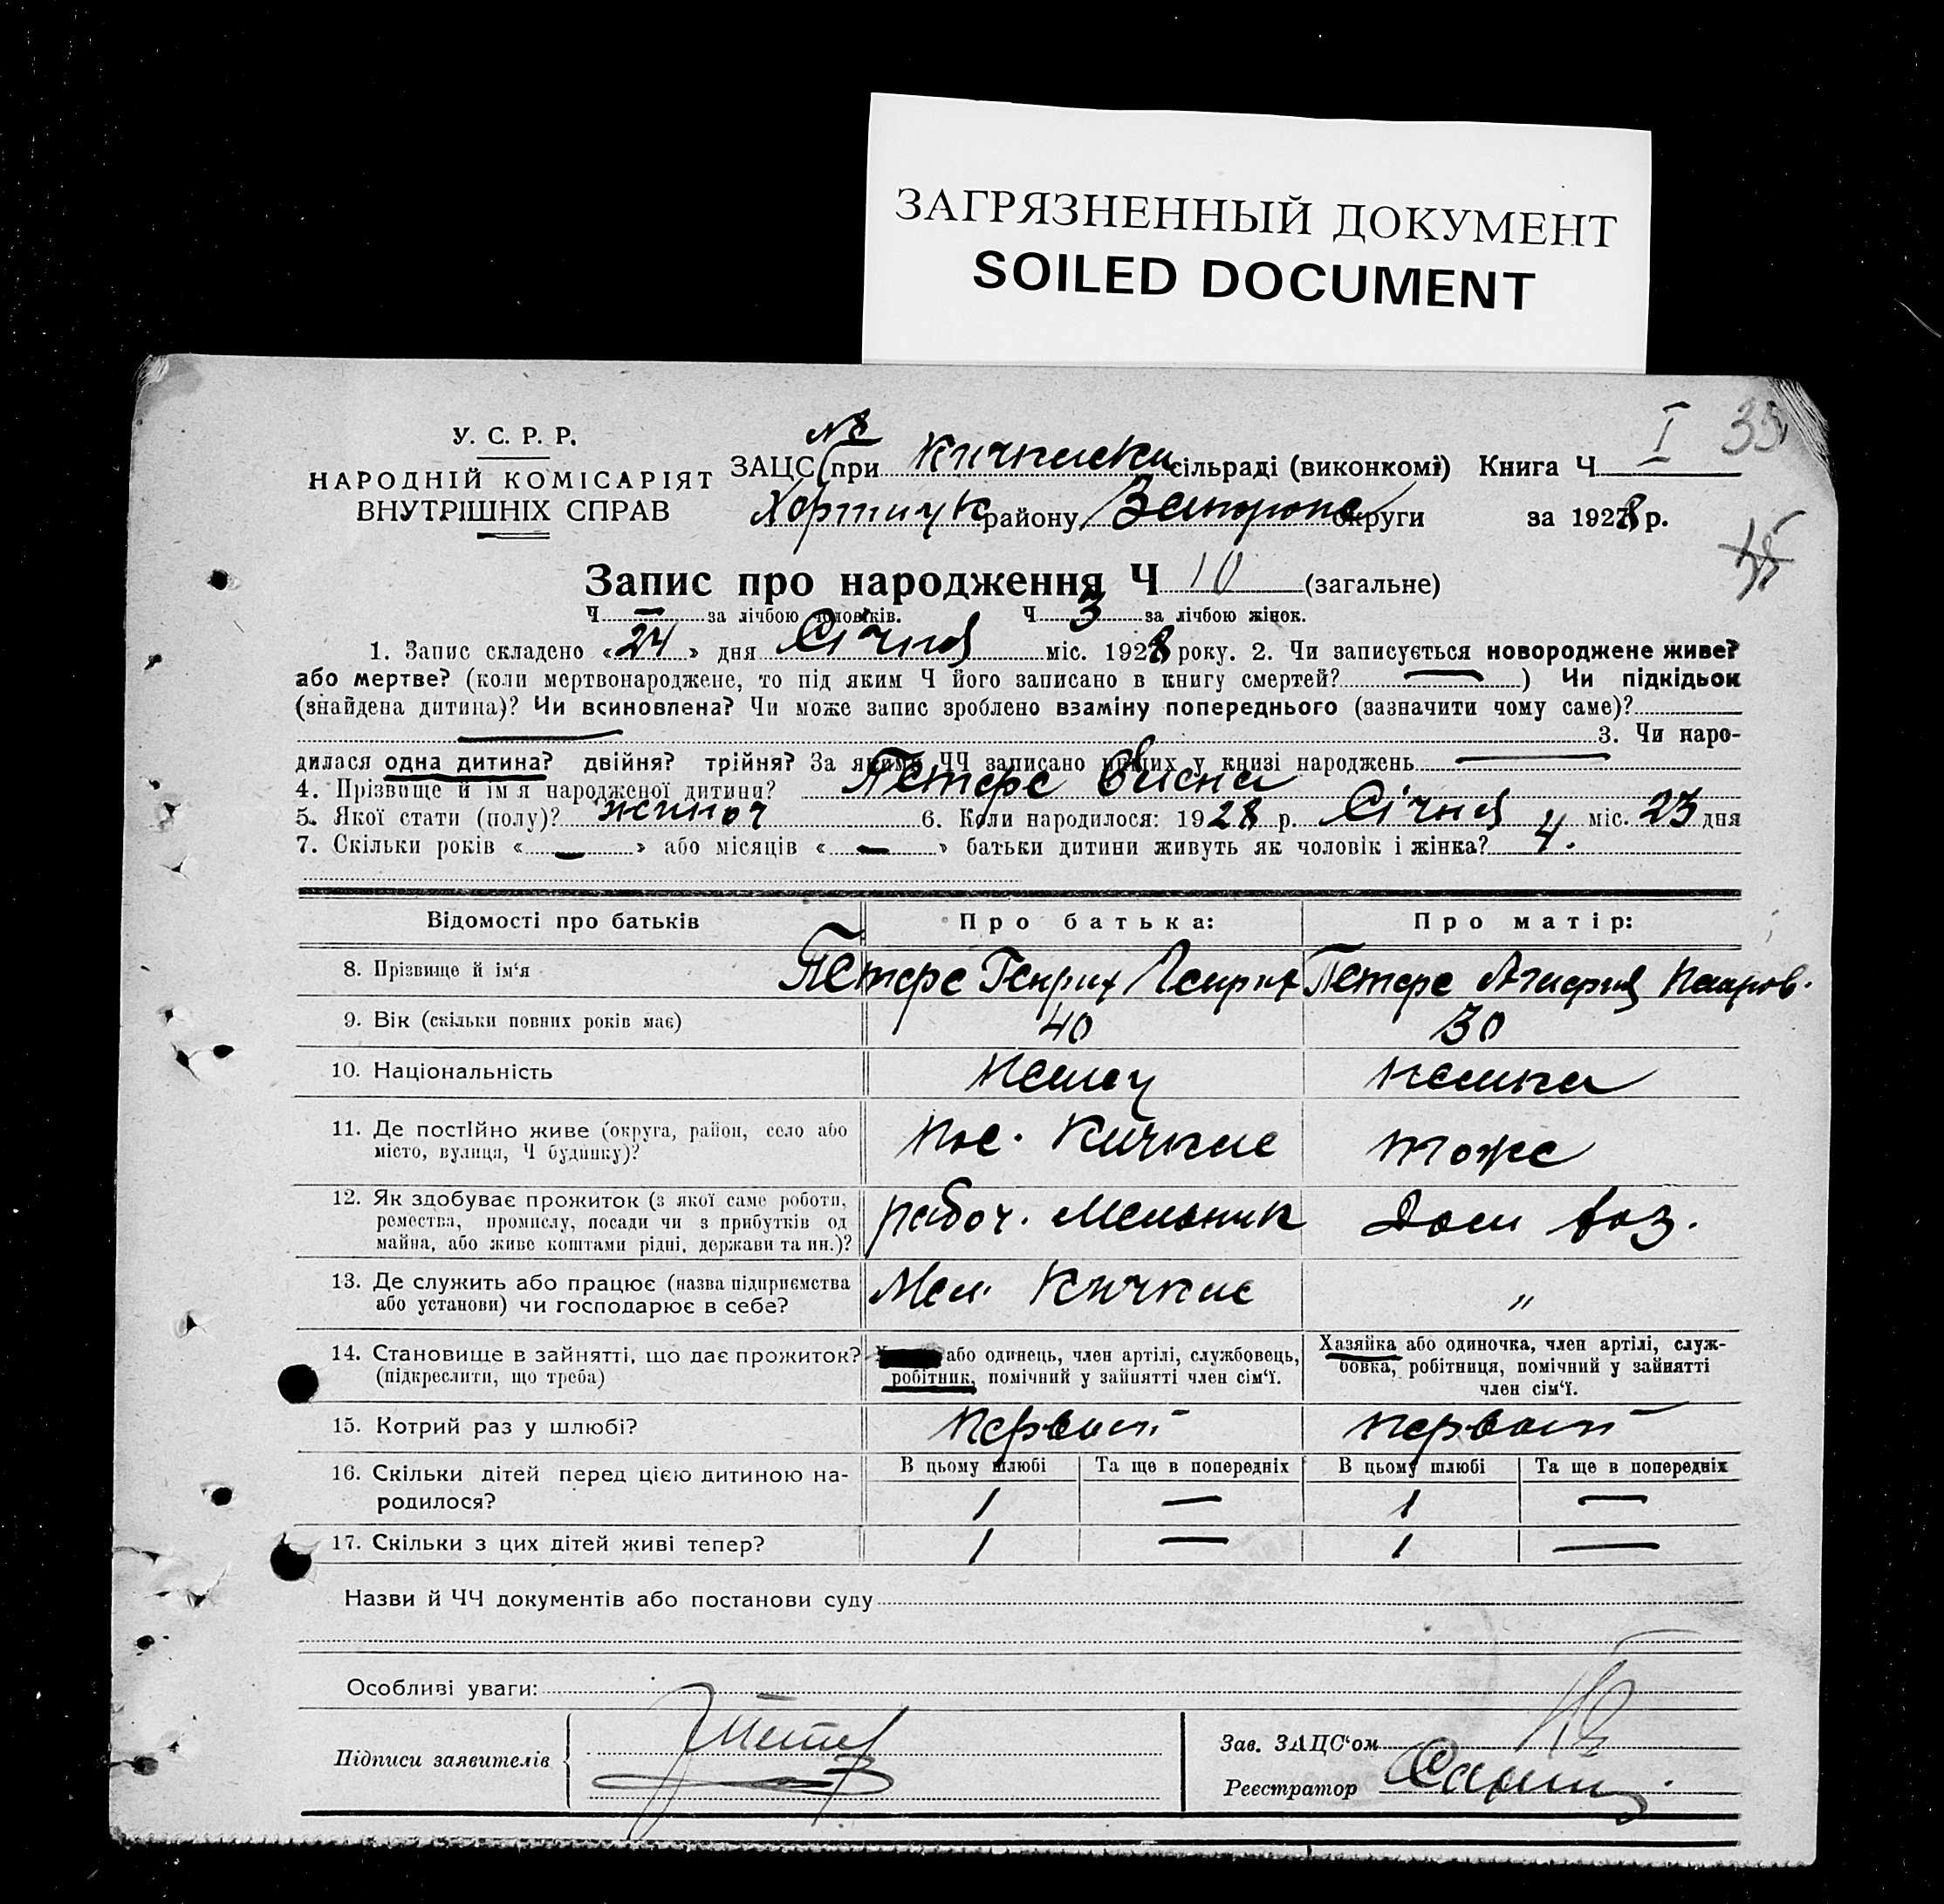 ЗАГРЯЗНЕННЫЙ ДОКУМЕНТ
SOILED DOCUMENT
У. С. Р. Р.
НАРОДНІЙ КОМІСАРІЯТ
ВНУТРІШНІХ СПРАВ
№8
ЗАЦС (при Кичкаски сільраді (виконкомі) Книга Ч I 35
Хортицк району Запорож округи за 1928 р.
Запис про народження Ч 10 (загальне)
Ч — за лічбою чоловіків. Ч 3 за лічбою жінок.
1. Запис складено «24» дня Січня міс. 1928 року. 2. Чи записується новороджене живе?
або мертве? (коли мертвонароджене, то під яким Ч його записано в книгу смертей? —) Чи підкідьок
(знайдена дитина)? Чи всиновлена? Чи може запис зроблено взаміну попереднього (зазначити чому саме)?
— 3. Чи наро-
дилася одна дитина? двійня? трійня? За якими ЧЧ записано инших у книзі народжень —
4. Прізвище й ім'я народженої дитини? Петерс
5. Якої стати (полу)? жиноч 6. Коли народилося: 1928 р. Січня міс. 23 дня
7. Скільки років «—» або місяців «—» батьки дитини живуть як чоловік і жінка? 4.
Відомості про батьків Про батька: Про матір:
8. Прізвище й ім'я Петерс Генрих Генрих Петерс
9. Вік (скільки повних років має) 40 30
10. Національність немец немка
11. Де постійно живе (округа, район, село або
місто, вулиця, Ч будинку)? Кичкас тоже
12. Як здобуває прожиток (з якої саме роботи,
ремества, промислу, посади чи з прибутків од
майна, або живе коштами рідні, держави та ин.)? рабоч. Мельник Дом хоз.
13. Де служить або працює (назва підприємства
або установи) чи господарює в себе? Мел. Кичкас "
14. Становище в зайнятті, що дає прожиток?
(підкреслити, що треба)
або одинець, член артілі, службовець,
робітник, помічний у зайнятті член сім'ї.
Хазяйка або одиночка, член артілі, служ-
бовка, робітниця, помічний у зайнятті
член сім'ї.
15. Котрий раз у шлюбі? первый первый
16. Скільки дітей перед цією дитиною на-
родилося?
В цьому шлюбі Та ще в попередніх В цьому шлюбі Та ще в попередніх
1 — 1 —
17. Скільки з цих дітей живі тепер? 1 — 1 —
Назви й ЧЧ документів або постанови суду
Особливі уваги:
Підписи заявителів
Зав. ЗАЦС'ом
Реєстратор